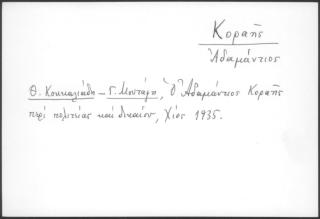 Κοραῆς
Ἀδαμάντιος
Θ. Κουκουλιάδη – Γ. Μουτάφη, Ὁ Ἀδαμάντιος Κοραῆς
περὶ πολιτείας καὶ δικαίου, Χίος 1935.